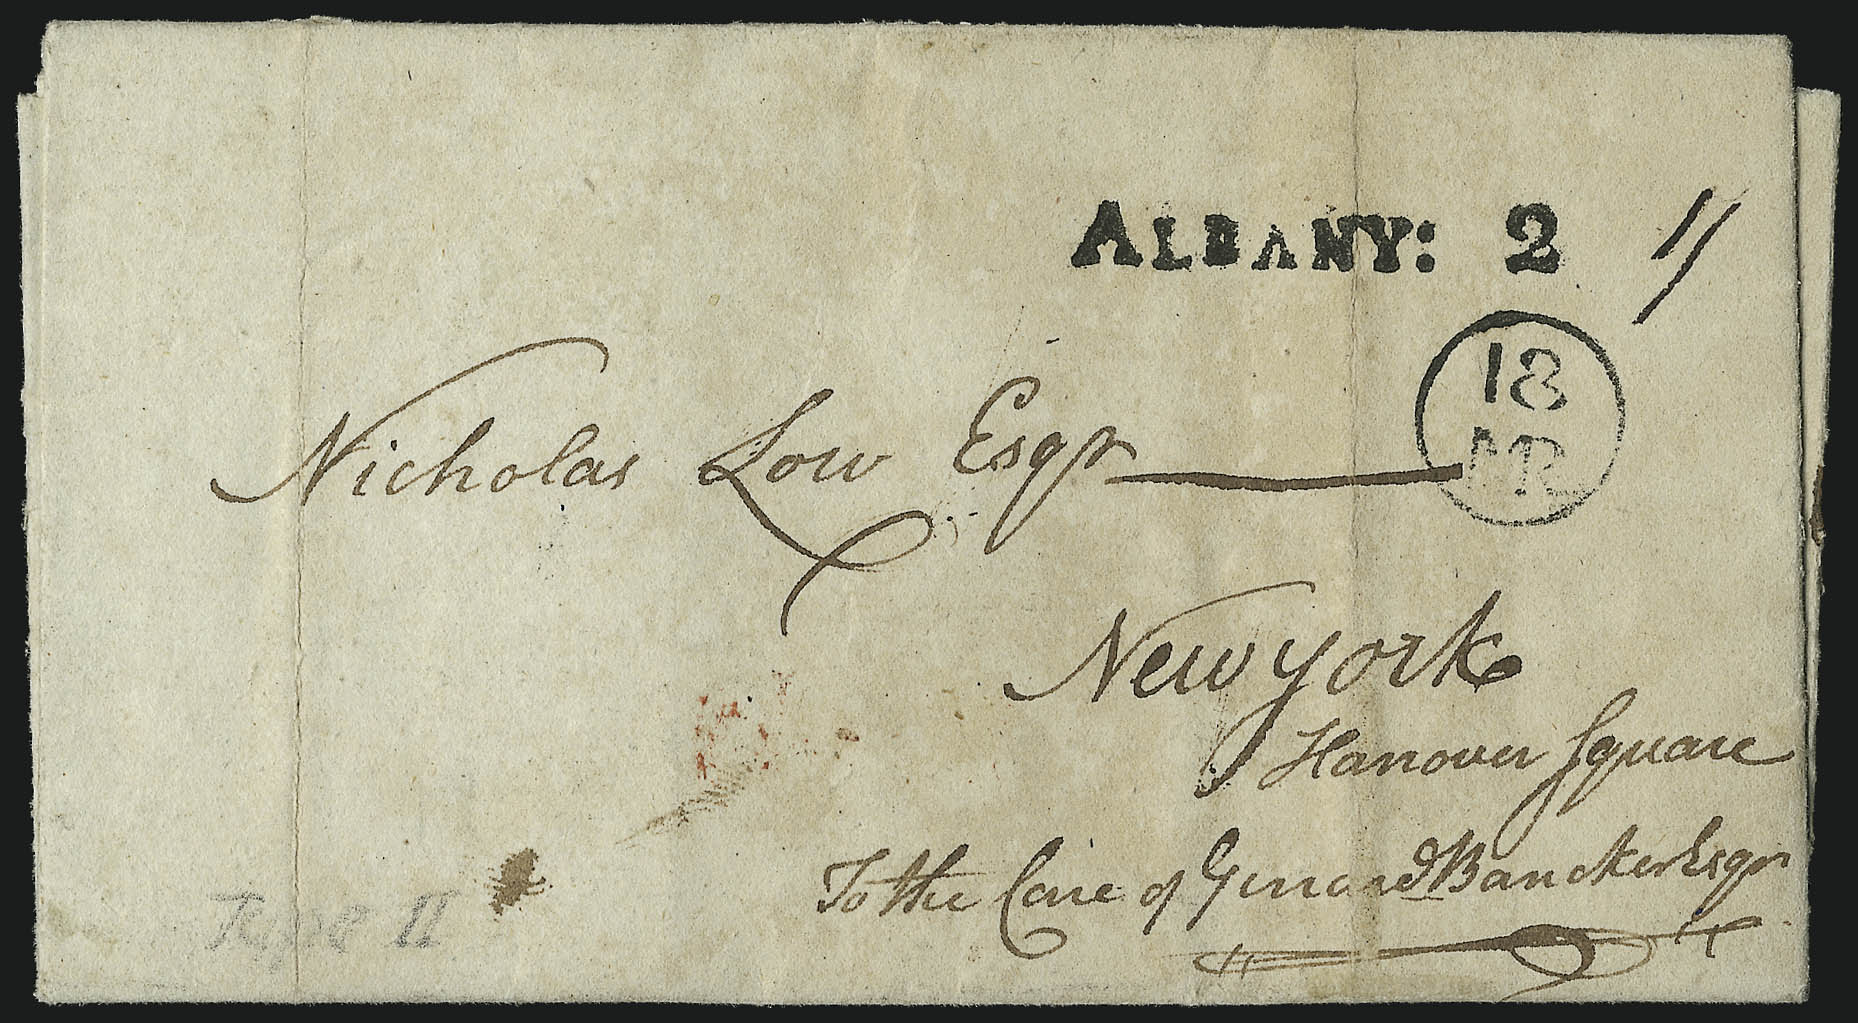 ALBANY: 2 1/
18
AR
Nicholas Low Esqr
New york
Hanover Square
To the Care of Gerrard Bancker Esqr
Type II